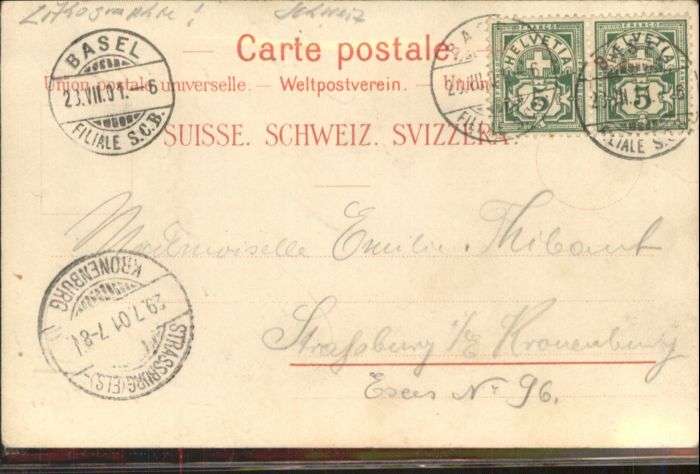 Lithographie! Schweiz
Carte postale.
Union postale universelle. – Weltpostverein. – Union
SUISSE. SCHWEIZ. SVIZZERA.
BASEL
23.VII.01.–6
FILIALE S.C.B.
HELVETIA
FRANCO
5
HELVETIA
FRANCO
5
FILIALE S.C.B.
FILIALE S.C.B.
Mademoiselle Emilie Thibaut
Strassburg i/E Kronenburg
N° 96.
STRASSBURG (ELS)-KRONENBURG
29.7.01 7-8